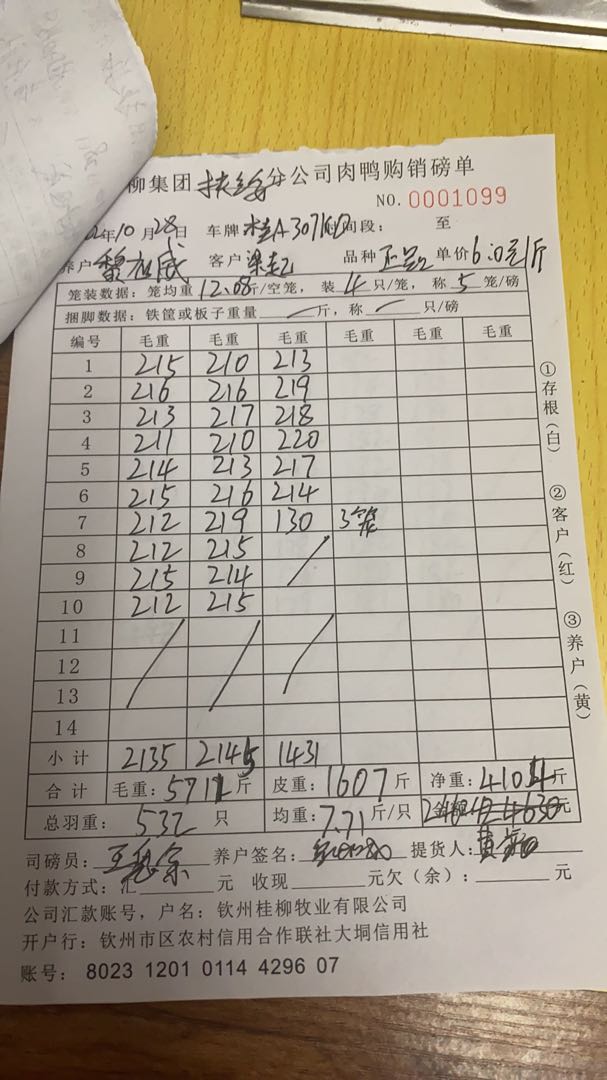 柳集团扶绥分公司肉鸭购销磅单
NO. 0001099
年10月28日 车牌 桂A307 时间段: 至
养户 客户 梁 品种 单价6.0元/斤
笼装数据: 笼均重12.08斤/空笼, 装4只/笼, 称5笼/磅
捆脚数据: 铁筐或板子重量 斤, 称 只/磅
编号 毛重 毛重 毛重 毛重 毛重 毛重
1 215 210 213
2 216 216 219
3 213 217 218
4 211 210 220
5 214 213 217
6 215 216 214
7 212 219 130 3笼
8 212 215
9 215 214
10 212 215
11
12
13
14
小计 2135 2145 1431
合计 毛重: 5711斤 皮重: 1607斤 净重: 4104斤
总羽重: 532只 均重: 7.71斤/只 元
司磅员: 王 养户签名: 提货人: 黄
付款方式: 汇 元 收现 元欠(余): 元
公司汇款账号, 户名: 钦州桂柳牧业有限公司
开户行: 钦州市区农村信用合作联社大垌信用社
账号: 8023 1201 0114 4296 07
①存根(白)
②客户(红)
③养户(黄)